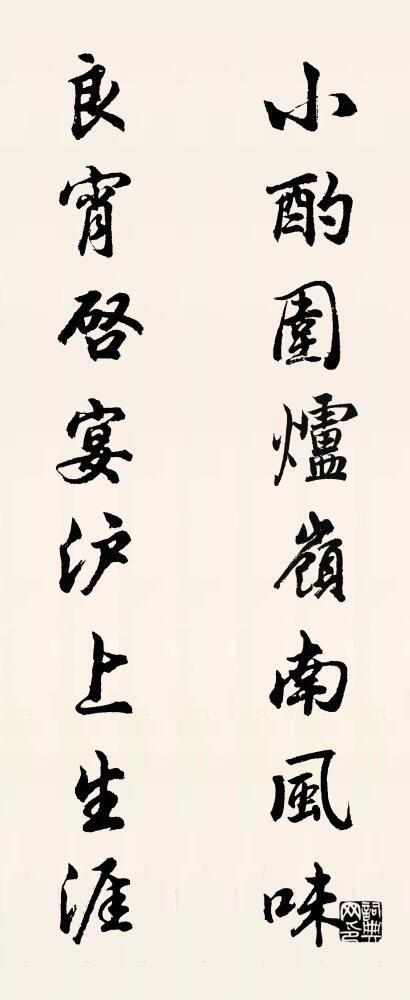 小酌圍爐嶺南風味
良宵啓宴沪上生涯
詞典网